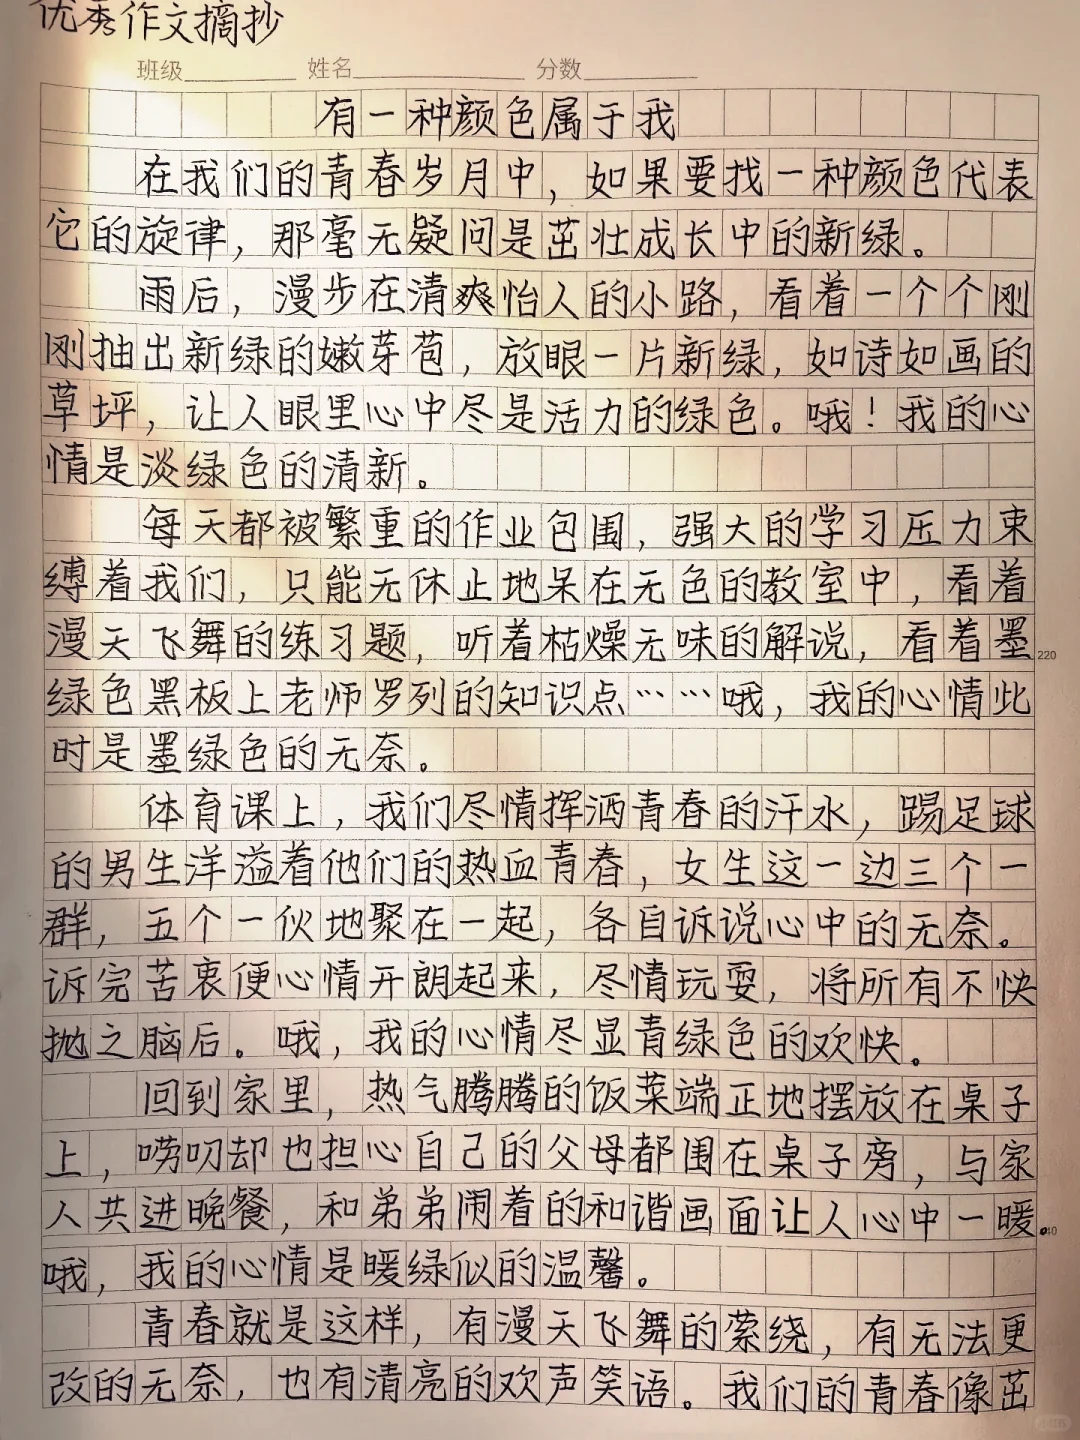 优秀作文摘抄
班级 姓名 分数
有一种颜色属于我
在我们的青春岁月中，如果要找一种颜色代表
它的旋律，那毫无疑问是茁壮成长中的新绿。
雨后，漫步在清爽怡人的小路，看着一个个刚
刚抽出新绿的嫩芽苞，放眼一片新绿，如诗如画的
草坪，让人眼里心中尽是活力的绿色。哦！我的心
情是淡绿色的清新。
每天都被繁重的作业包围，强大的学习压力束
缚着我们，只能无休止地呆在无色的教室中，看着
漫天飞舞的练习题，听着枯燥无味的解说，看着墨
220
绿色黑板上老师罗列的知识点……哦，我的心情此
时是墨绿色的无奈。
体育课上，我们尽情挥洒青春的汗水，踢足球
的男生洋溢着他们的热血青春，女生这一边三个一
群，五个一伙地聚在一起，各自诉说心中的无奈。
诉完苦衷便心情开朗起来，尽情玩耍，将所有不快
抛之脑后。哦，我的心情尽显青绿色的欢快。
回到家里，热气腾腾的饭菜端正地摆放在桌子
上，唠叨却也担心自己的父母都围在桌子旁，与家
人共进晚餐，和弟弟闹着的和谐画面让人心中一暖。
哦，我的心情是暖绿似的温馨。
青春就是这样，有漫天飞舞的萦绕，有无法更
改的无奈，也有清亮的欢声笑语。我们的青春像茁